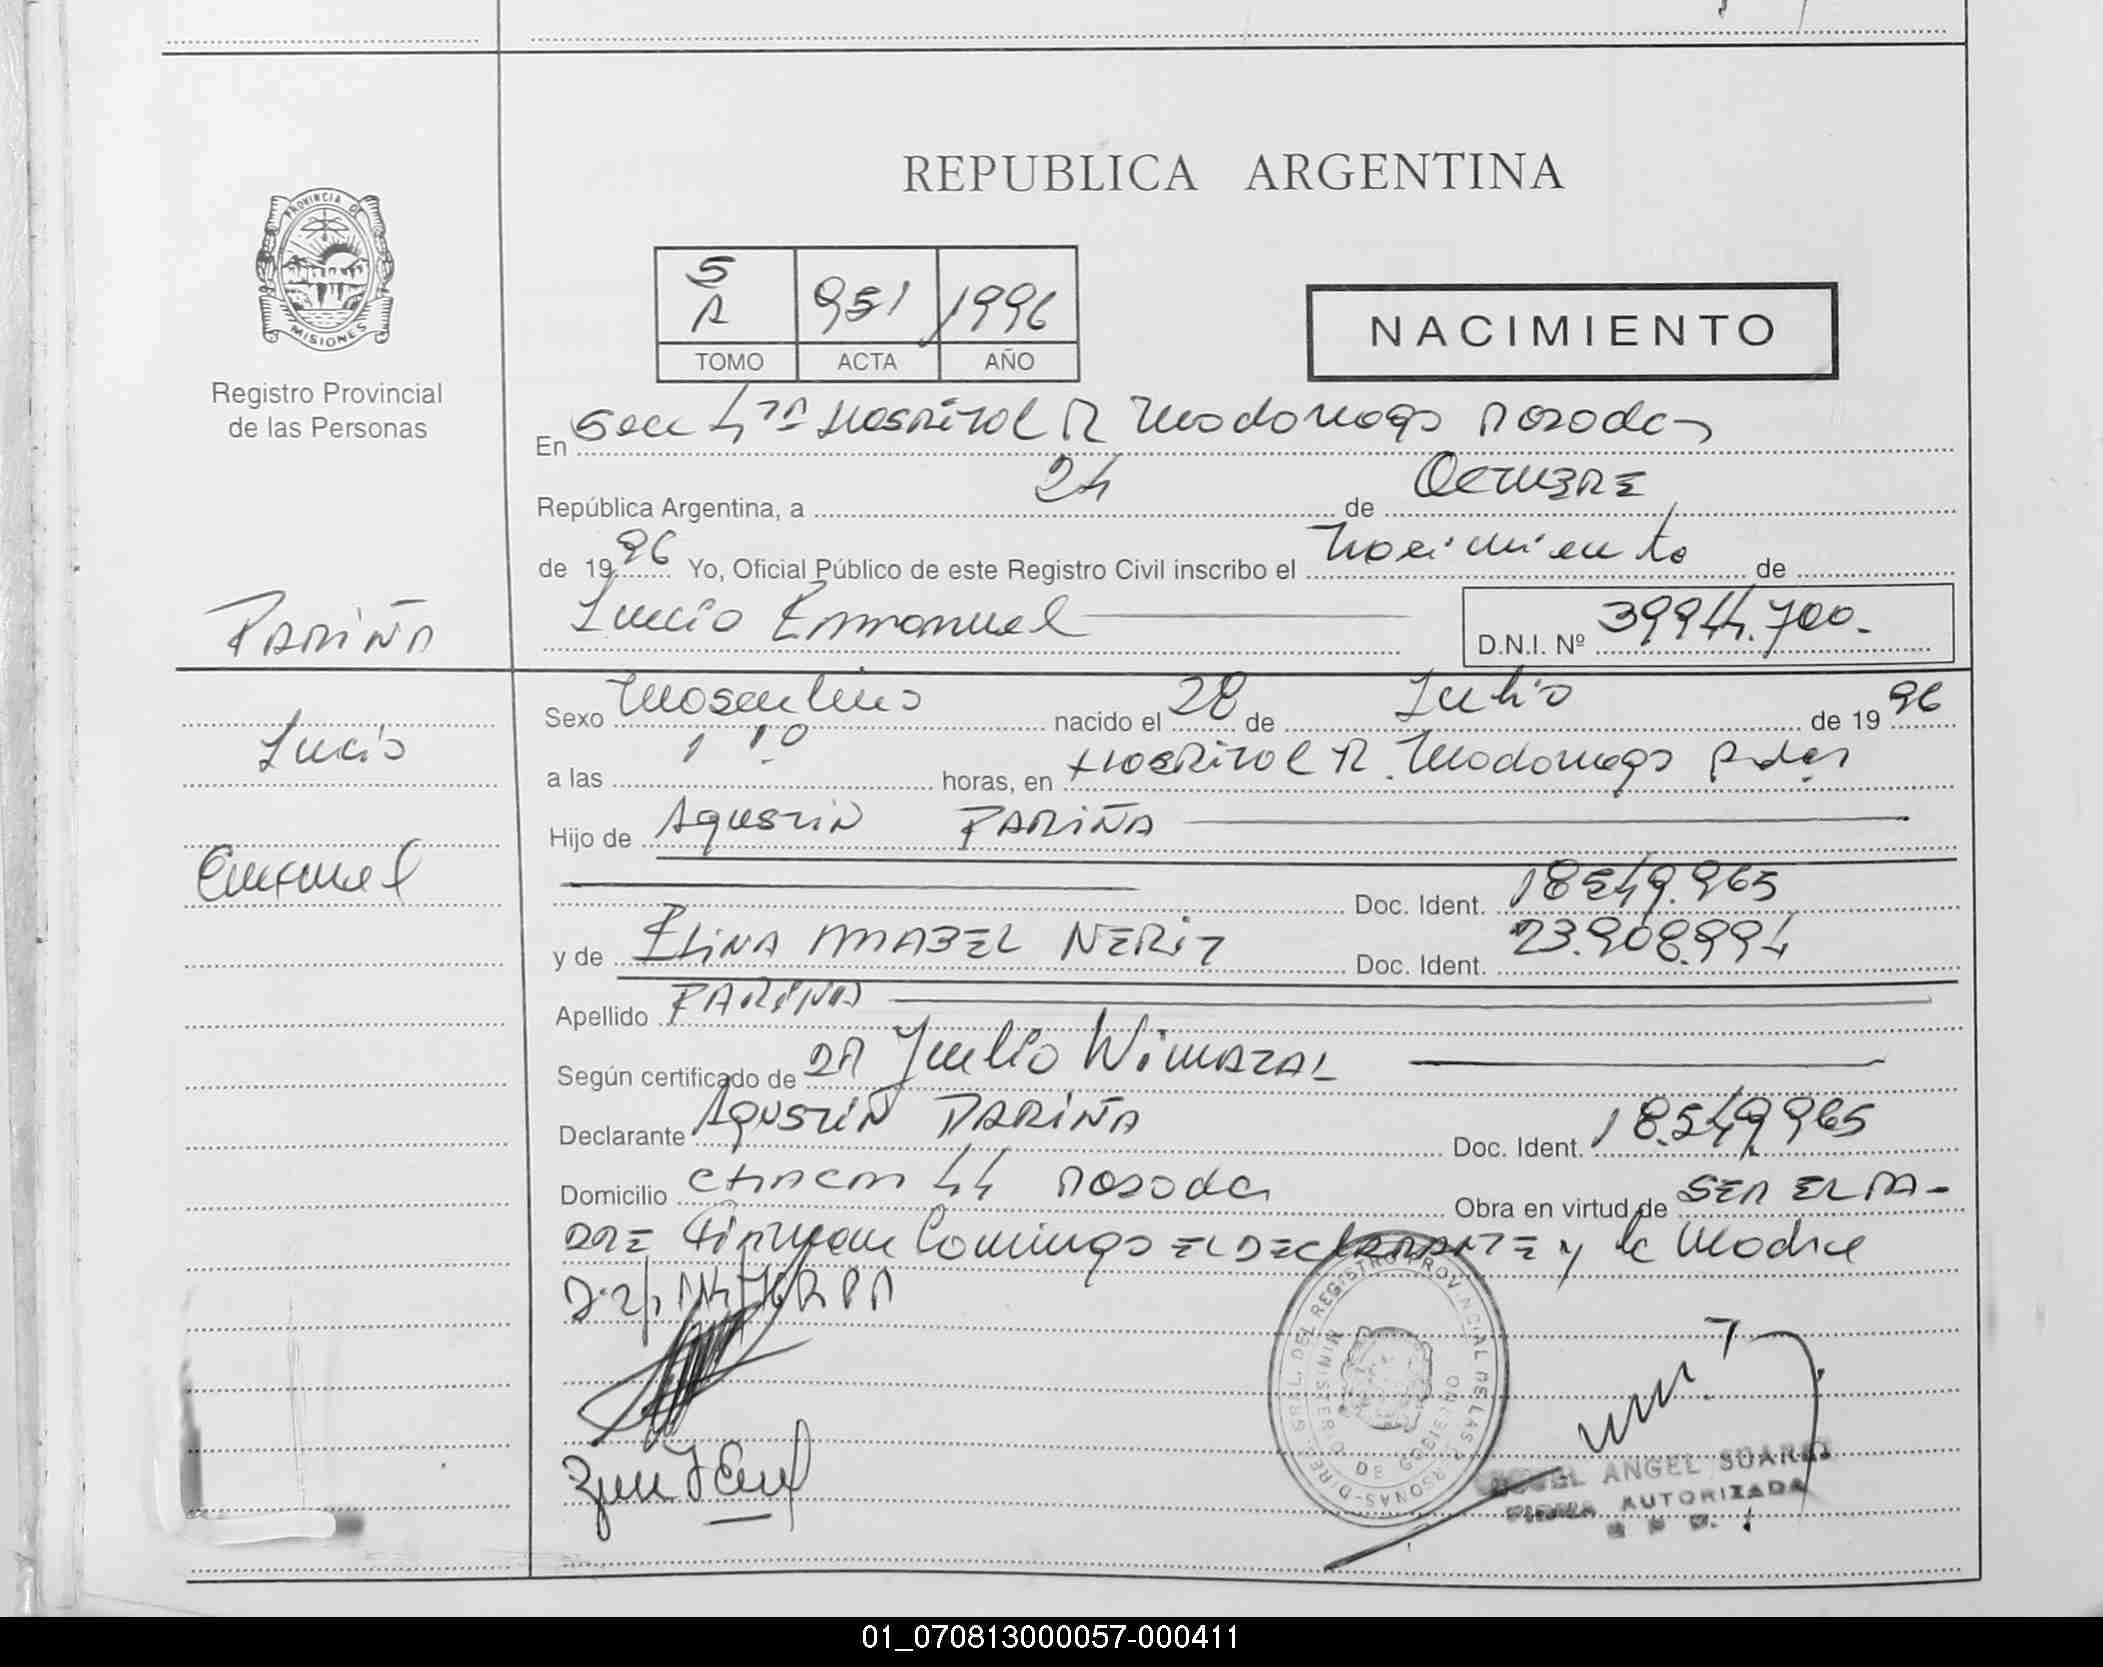 REPUBLICA ARGENTINA
PROVINCIA DE
MISIONES
Registro Provincial
de las Personas
5
A
951
1996
TOMO ACTA AÑO
NACIMIENTO
En Secc 4ta Hospital R Madariaga Posadas
República Argentina, a 24 de OCTUBRE
de 1996 Yo, Oficial Público de este Registro Civil inscribo el Nacimiento de
Lucio Emmanuel
D.N.I. Nº 39944.700.
PARIÑA
Lucio
Emanuel
Sexo Masculino nacido el 28 de Julio de 1996
a las horas, en Hospital R. Madariaga Pdas
Hijo de Agustin PARIÑA
Doc. Ident. 18549.965
y de ELINA MABEL NERIZ Doc. Ident. 23.908.994
Apellido PARIÑA
Según certificado de DR Julio
Declarante AGUSTIN PARIÑA Doc. Ident. 18.549.965
Domicilio CHACRA 44 Posadas Obra en virtud de SER EL PA-
DRE Firman Conmigo EL DECLARANTE y la Madre
DIREC. GRAL. DEL REGISTRO PROVINCIAL DE LAS PERSONAS
DE GOBIERNO
ANGEL SUAREZ
FIRMA AUTORIZADA
01_070813000057-000411